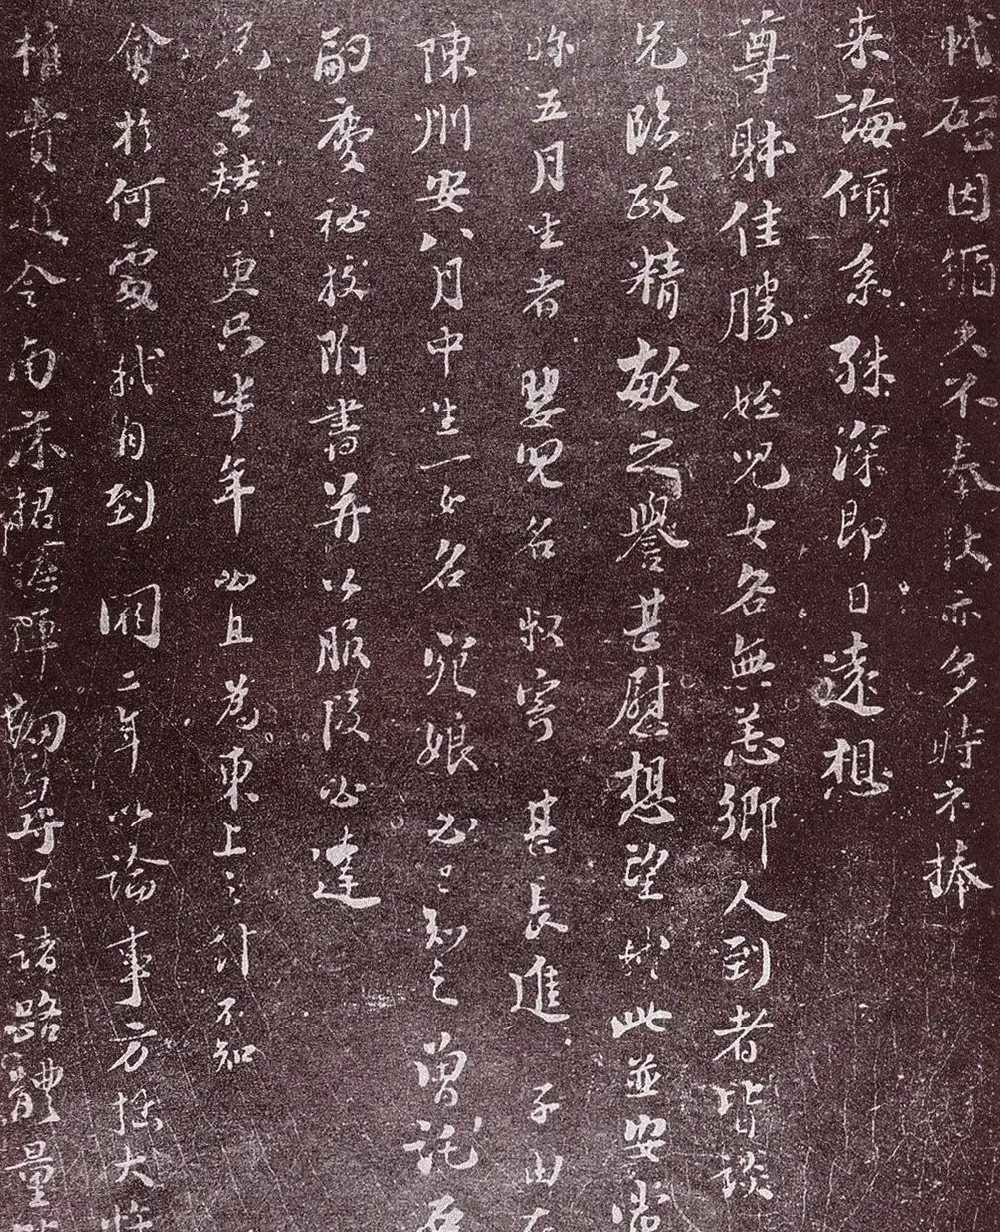 軾啓因循久不奉狀亦多時不捧
来誨傾系殊深即日遠想
尊躰佳勝姪兒女各無恙鄉人到者皆談
兄臨政精敏之譽甚慰想望軾此並安常
五月生者嬰兒名叔寄甚長進子由在
陳州安八月中生一女名宛娘必已知之曾託
嗣慶祕校附書并以服段必達
兄去替更只半年必且為東上之計不知
會於何處軾自到闕二年以論事方拙大忤
權貴近令南床捃摭彈劾尋下諸路體量